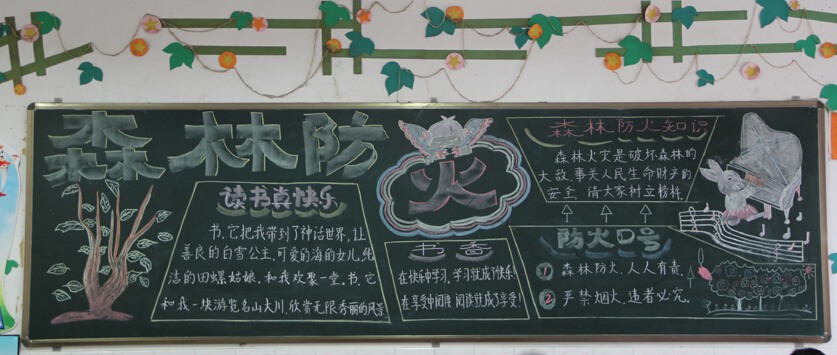 森林防火
读书真快乐
书,它把我带到了神话世界,让
善良的白雪公主,可爱的海的女儿,纯
洁的田螺姑娘,和我欢聚一堂。书,它
和我一块游览名山大川,欣赏无限秀丽的风景
书香
在快乐中学习,学习就成了快乐
在享受中阅读,阅读就成了享受!
森林防火知识
森林火灾是破坏森林的
大敌,事关人民生命财产的
安全,请大家树立榜样。
防火口号
1 森林防火,人人有责。
2 严禁烟火,违者必究。